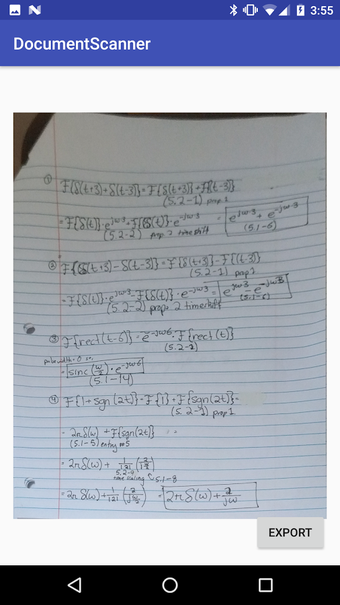 3:55
DocumentScanner
① F{δ(t+3)+δ(t-3)} = F{δ(t+3)}+F{δ(t-3)}
(5.2-1) prop 1
= F{δ(t)}·e^jω3 + F{δ(t)}·e^-jω3 = e^jω3 + e^-jω3
(5.2-2) prop 2 time shift (5.1-5)
② F{δ(t+3) - δ(t-3)} = F{δ(t+3)} - F{(t-3)}
(5.2-1) prop 1
= F{δ(t)}·e^jω3 - F{δ(t)}·e^-jω3 = e^jω3 - e^-jω3
(5.2-2) prop 2 timeshift (5.1-5)
③ F{rect(t-6)} = e^-jω6 · F{rect(t)}
(5.2-2)
= sinc(ω/2)·e^-jω6
(5.1-14)
④ F{1+sgn(2t)} = F{1}+F{sgn(2t)}
(5.2-1) prop 1
= 2πδ(ω) + F{sgn(2t)}
(5.1-5) entry #5
= 2πδ(ω) + 1/|2| (2/jω/2)
5.2-4 5.1-8
= 2πδ(ω) + 1/|2| (2/jω/2) = 2πδ(ω) + 2/jω
EXPORT